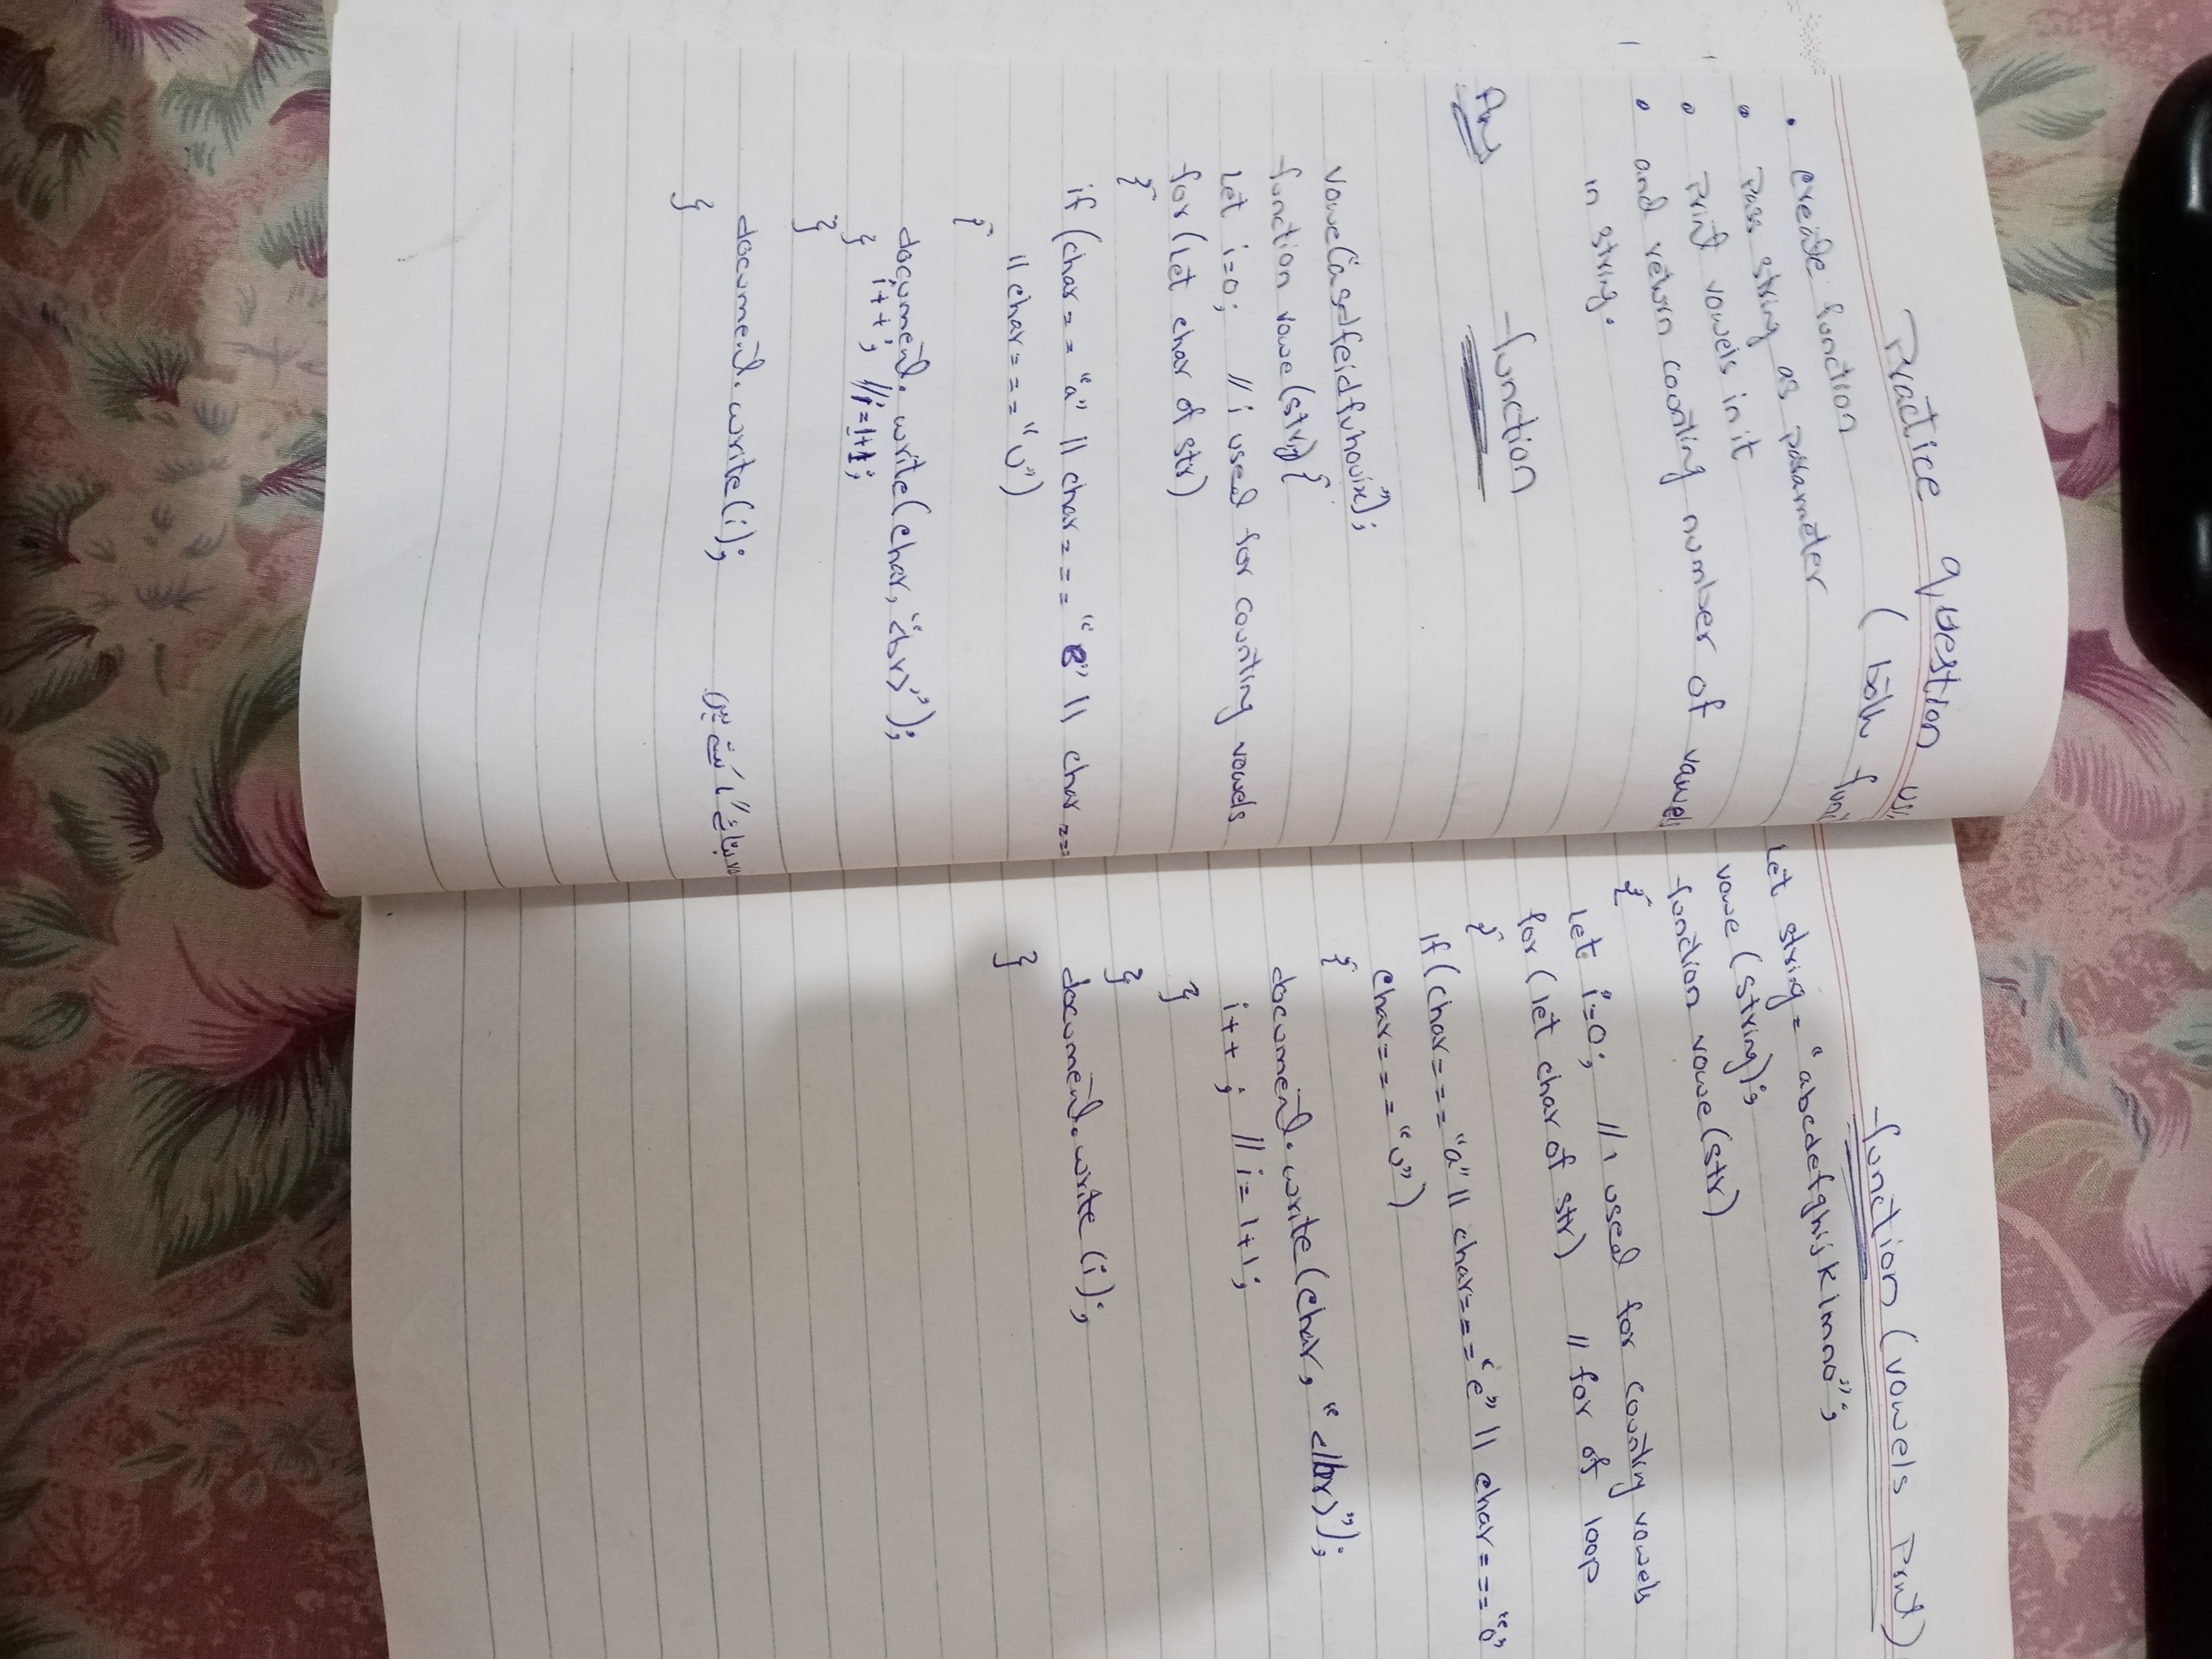 Practice question
(both
• create function
• pass string as parameter
• print vowels in it
• and return counting number of vowels
in string.
Ans function
vowe("asdfeidfuhouixe");
function vowe(str){
let i=0; // i used for counting vowels
for(let char of str)
{
if(char=== "a" || char=== "e" || char ==
|| char=== "u")
{
document.write(char,"<br>");
i++; //i=1+1;
}
}
document.write(i);
}
function (vowels print)
let string= "abcdefghijklmno";
vowe(string);
function vowe(str)
{
let i=0; // i used for counting vowels
for(let char of str) // for of loop
{
if(char==="a"|| char==="e"|| char==="o"
char==="u")
{
document.write(char,"<br>");
i++; // i=1+1;
}
}
document.write(i);
}